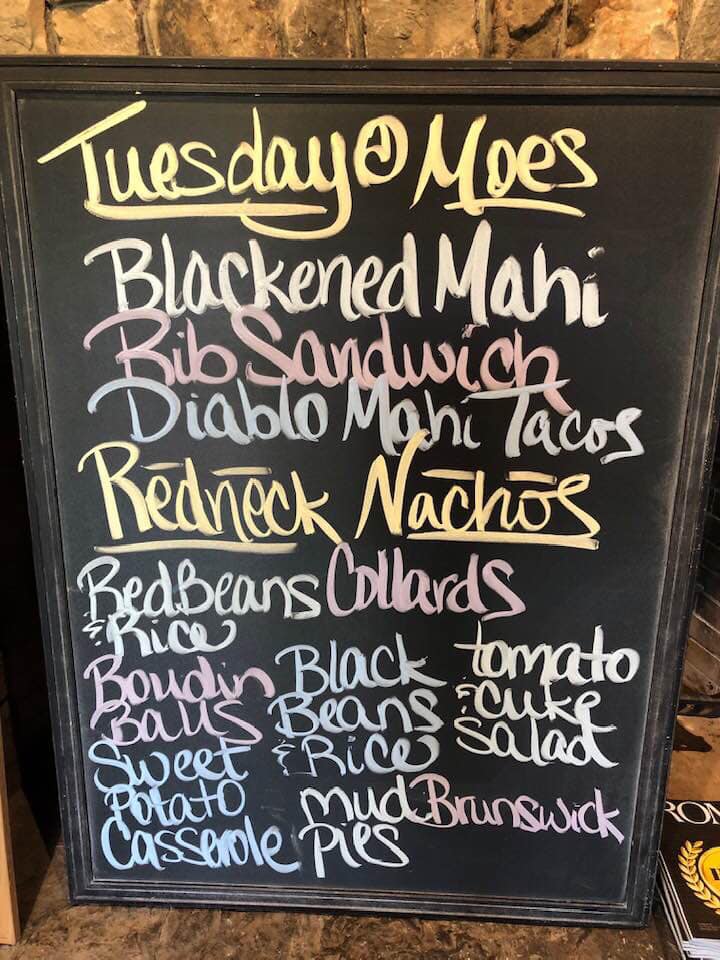 Tuesday @ Moes
Blackened Mahi
Rib Sandwich
Diablo Mahi Tacos
Redneck Nachos
Red Beans
& Rice
Collards
Boudin
Balls
Black
Beans
& Rice
tomato
& cuke
salad
Sweet
Potato
Casserole
mud
Pies
Brunswick
RON